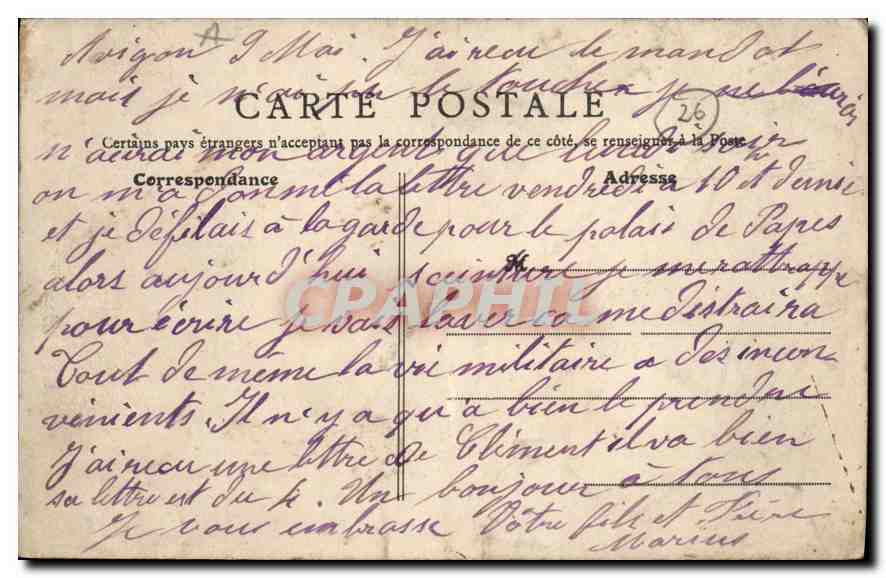 A
Avignon 9 Mai. J'ai recu le mandat
mais je n'ai pu le toucher je ne
CARTE POSTALE
26
Certains pays étrangers n'acceptant pas la correspondance de ce côté, se renseigner à la Poste
n'aurai mon argent que lundi soir
Correspondance
Adresse
on m'a donné la lettre vendredi à 10 et demie
et je défilais à la garde pour le palais de Papes
alors aujourd'hui je me rattrappe
M
CPAPHIL
pour écrire je vais laver ca me distraira
Tout de même la vie militaire a des incon-
vénients. Il n'y a qu'à bien le prendre
J'ai recu une lettre de Clément il va bien
sa lettre est du 4. Un bonjour à tous
Je vous embrasse Vôtre fils et Frère
Marius